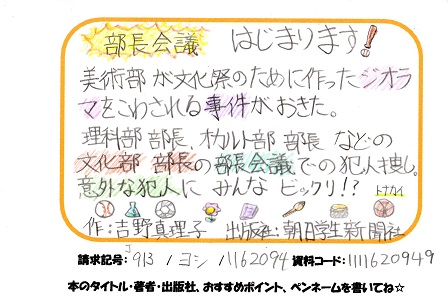 部長会議 はじまります!
美術部が文化祭のために作ったジオラ
マをこわされる事件がおきた。
理科部部長 オカルト部部長 などの
文化部部長の部長会議での犯人捜し。
意外な犯人に みんな ビックリ!? トナカイ
作:吉野真理子 出版社:朝日学生新聞社
請求記号:J913/ヨシ/1162094 資料コード:1111620949
本のタイトル・著者・出版社、おすすめポイント、ペンネームを書いてね☆